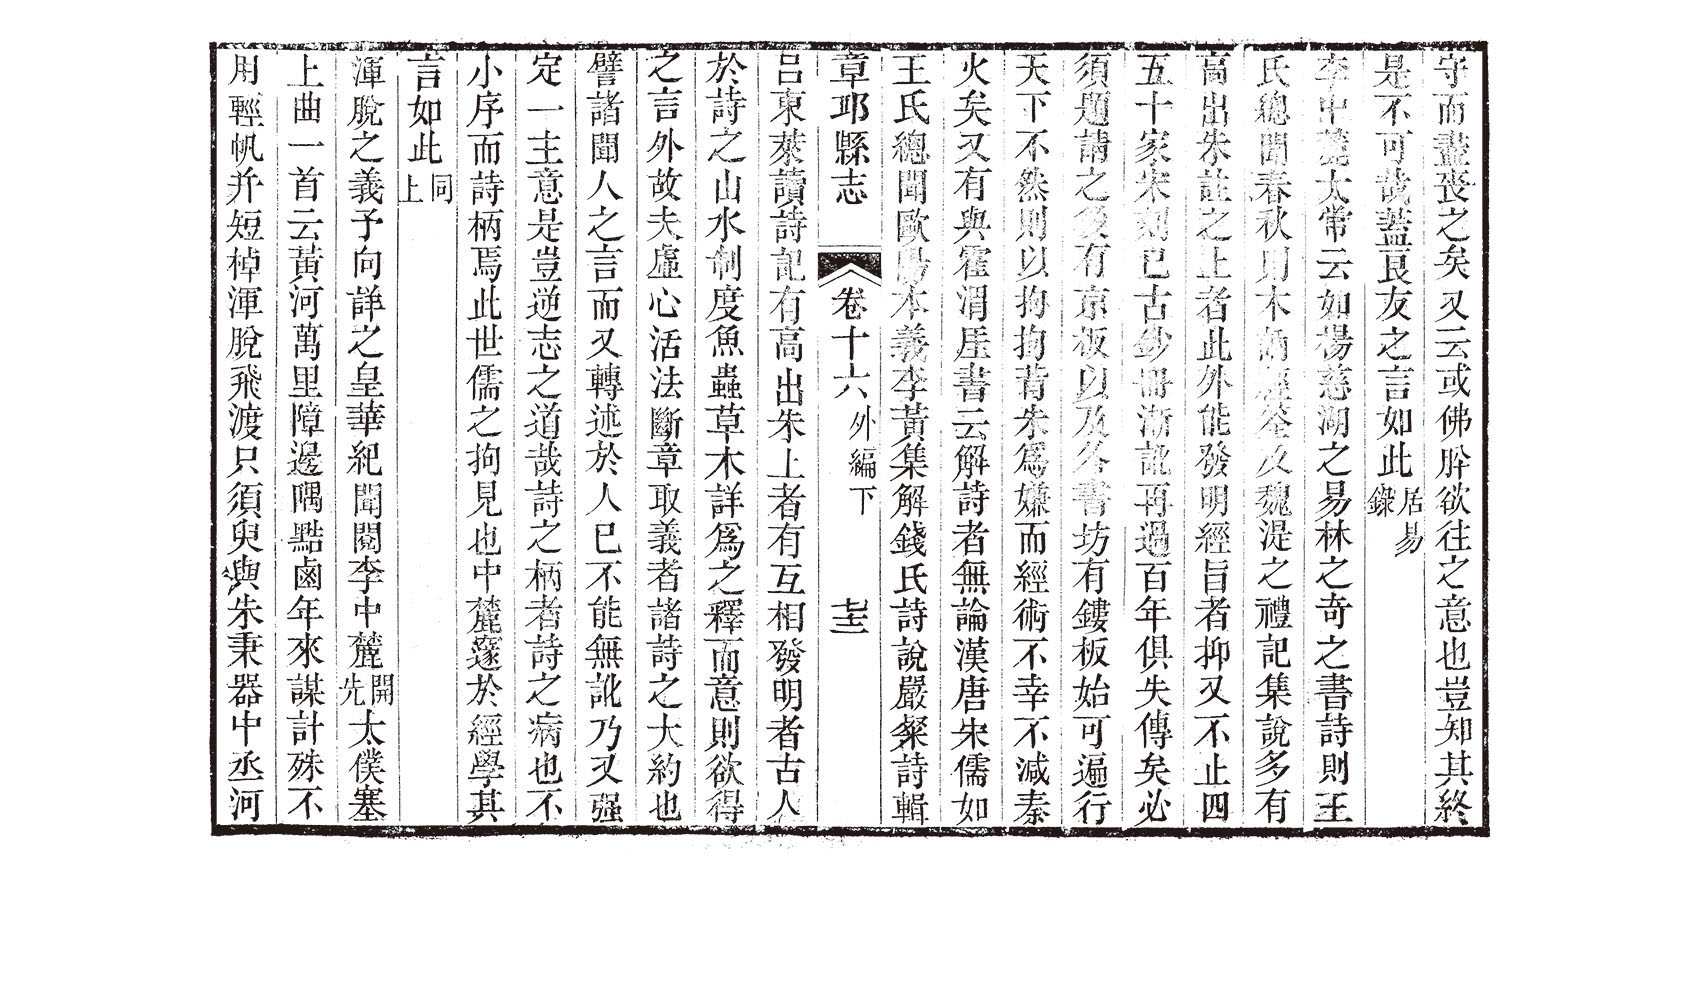 守而盡喪之矣又云或佛肸欲往之意也豈知其終
是不可哉蓋良友之言如此居易錄
李中麓太常云如楊慈湖之易林之奇之書詩則王
氏總聞春秋則木訥經筌及魏湜之禮記集說多有
高出朱註之上者此外能發明經旨者抑又不止四
五十家宋刻已古鈔冊漸訛再過百年俱失傳矣必
須題請之後有京板以及各書坊有鏤板始可遍行
天下不然則以拘拘背朱爲嫌而經術不幸不減秦
火矣又有與霍渭厓書云解詩者無論漢唐宋儒如
王氏總聞歐陽本義李黃集解錢氏詩說嚴粲詩輯
章邱縣志 卷十六外編下 七三
呂東萊讀詩記有高出朱上者有互相發明者古人
於詩之山水制度魚蟲草木詳爲之釋而意則欲得
之言外故夫虛心活法斷章取義者諸詩之大約也
譬諸聞人之言而又轉述於人已不能無訛乃又强
定一主意是豈逆志之道哉詩之柄者詩之病也不
小序而詩柄焉此世儒之拘見也中麓邃於經學其
言如此同上
渾脫之義予向詳之皇華紀聞閱李中麓開先太僕塞
上曲一首云黃河萬里障邊隅點鹵年來謀計殊不
用輕帆并短棹渾脫飛渡只須臾與朱秉器中丞河